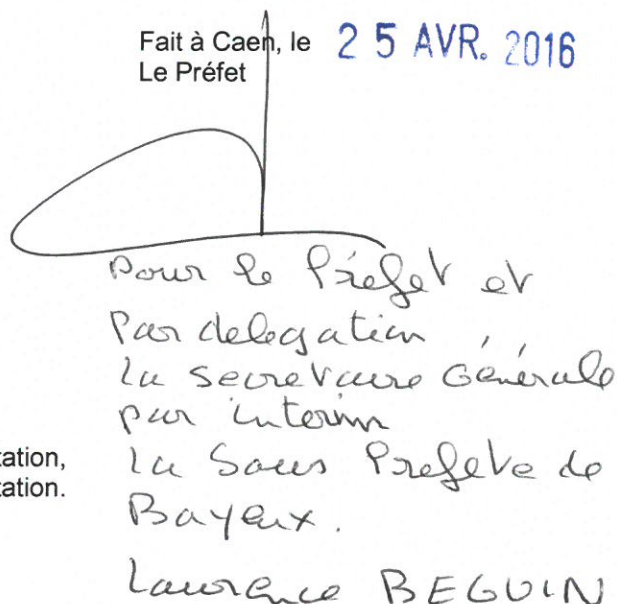 Fait à Caen, le 25 AVR. 2016
Le Préfet
Pour le Préfet et
Par delegation
la secretaire Générale
par interim
tation, la Sous Prefete de
tation. Bayeux.
Laurence BEGUIN